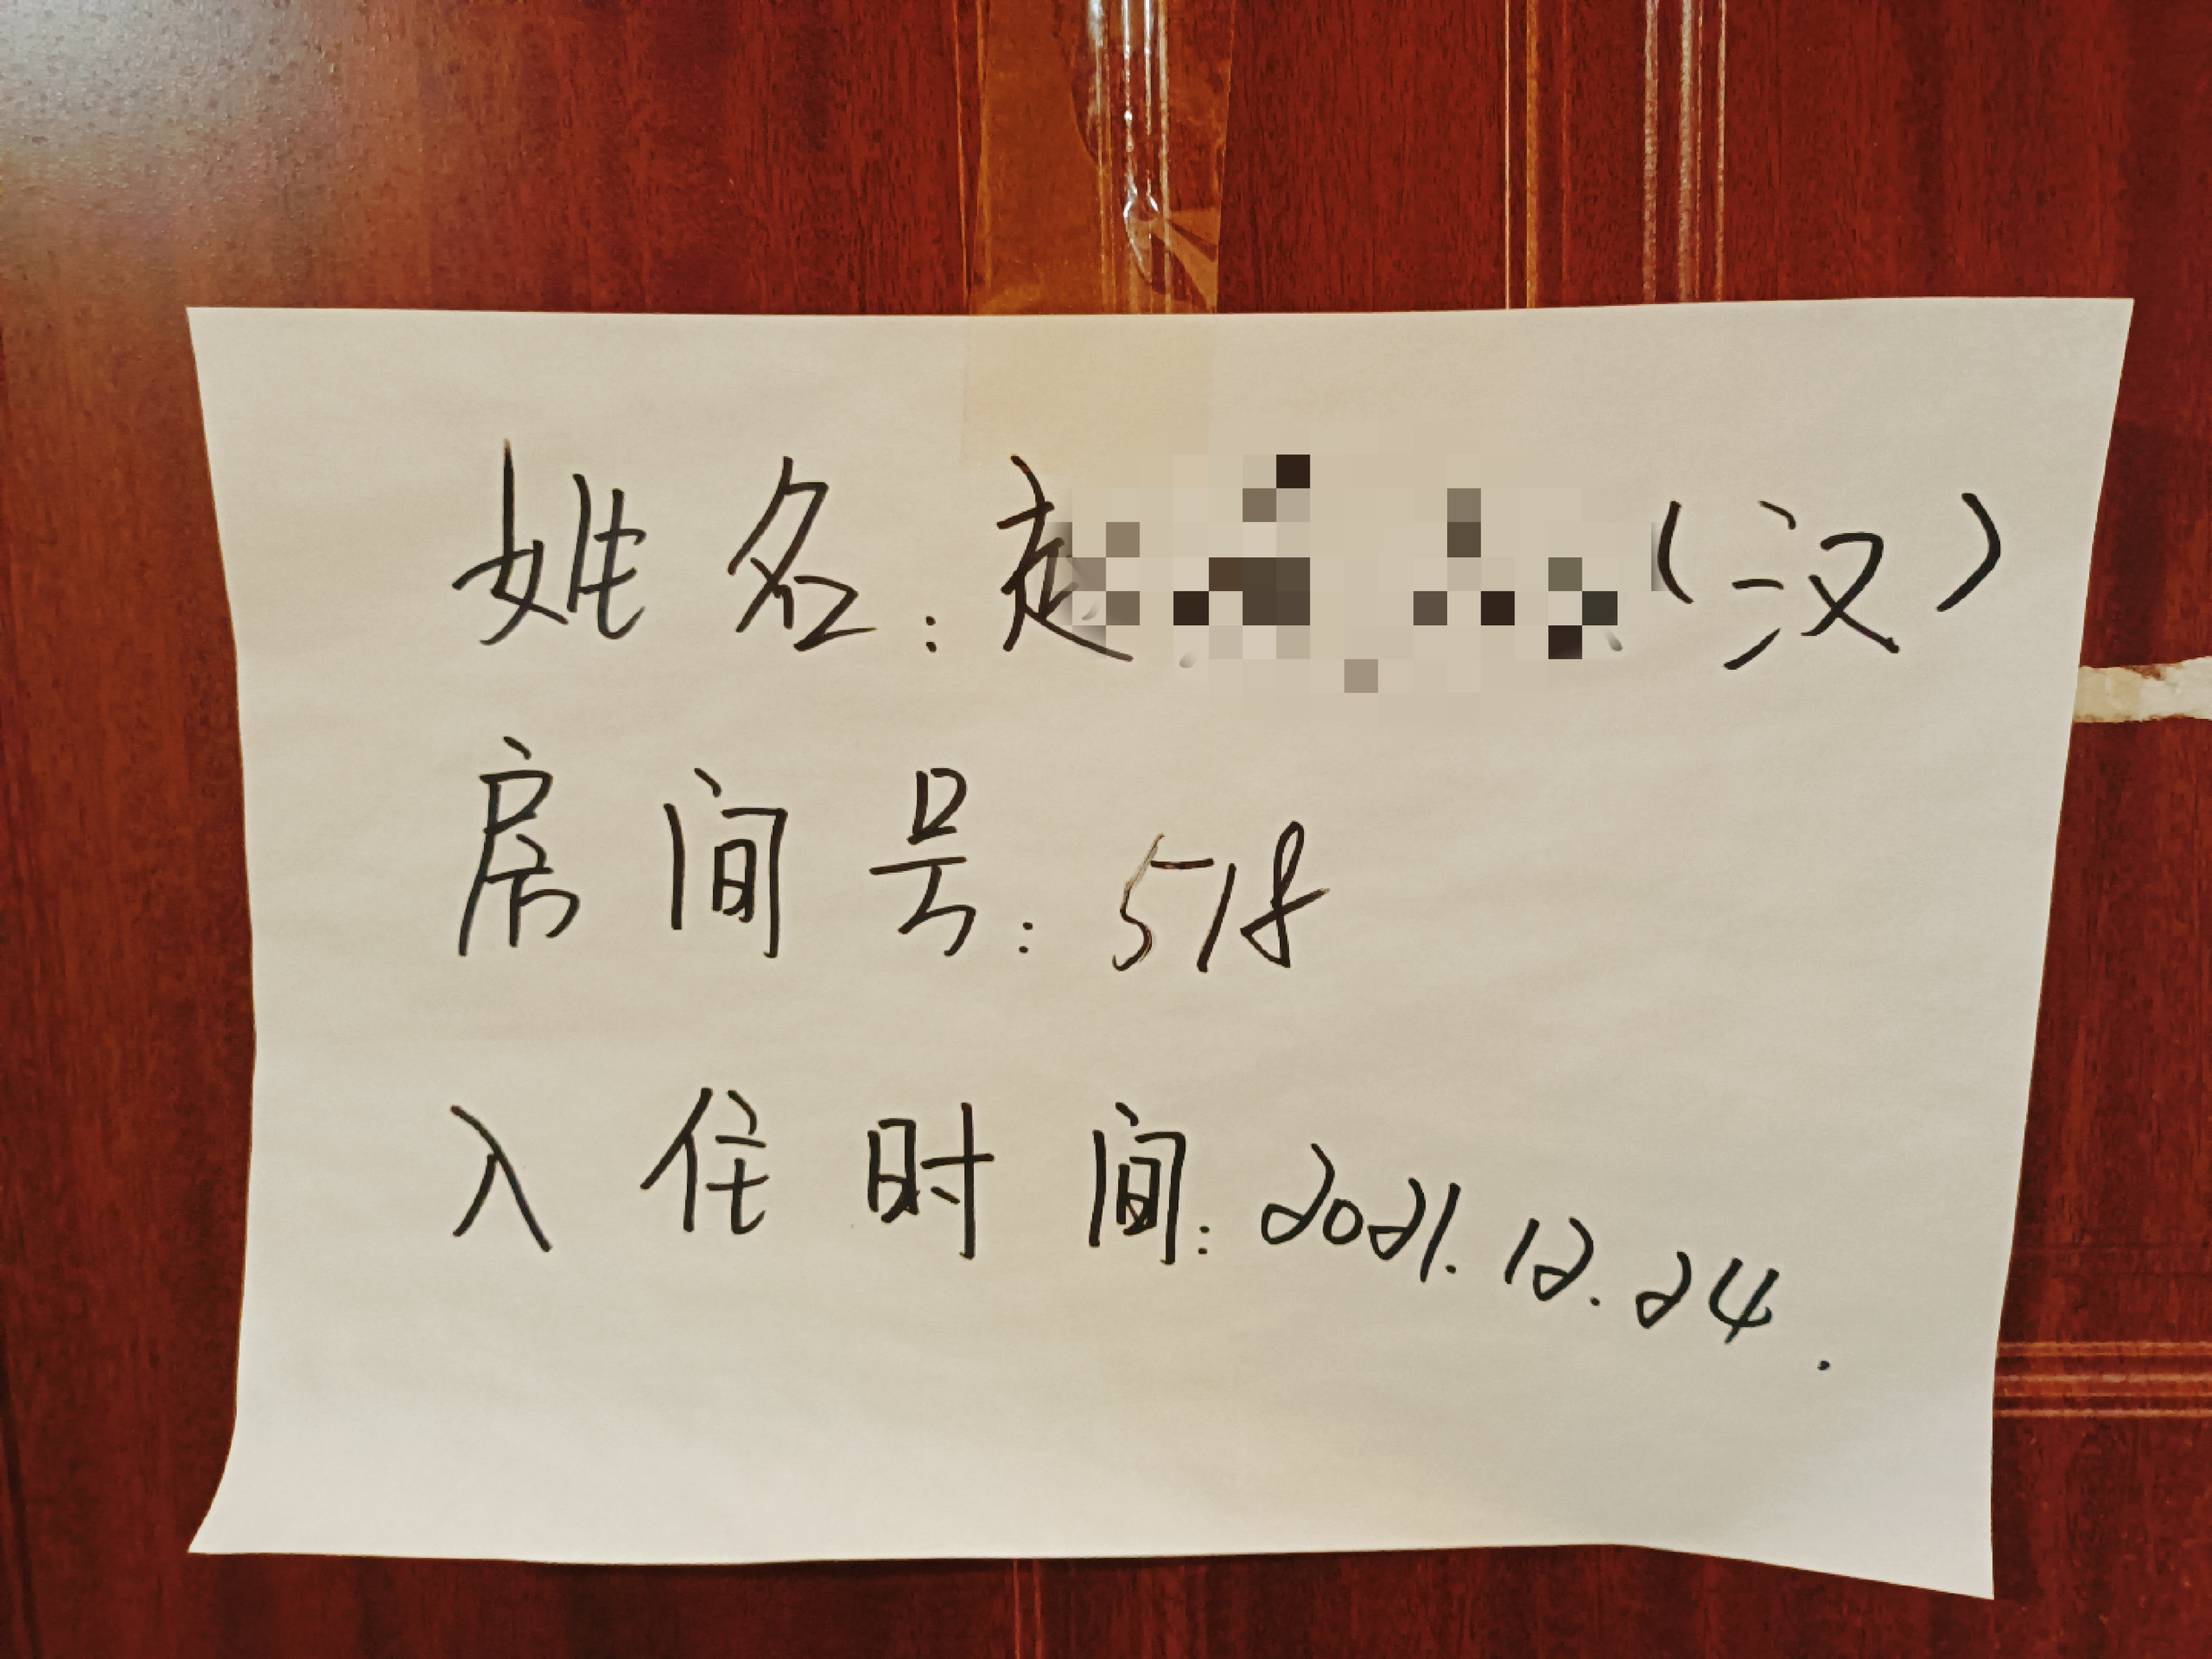 姓名：赵（汉）
房间号：518
入住时间：2021.12.24.